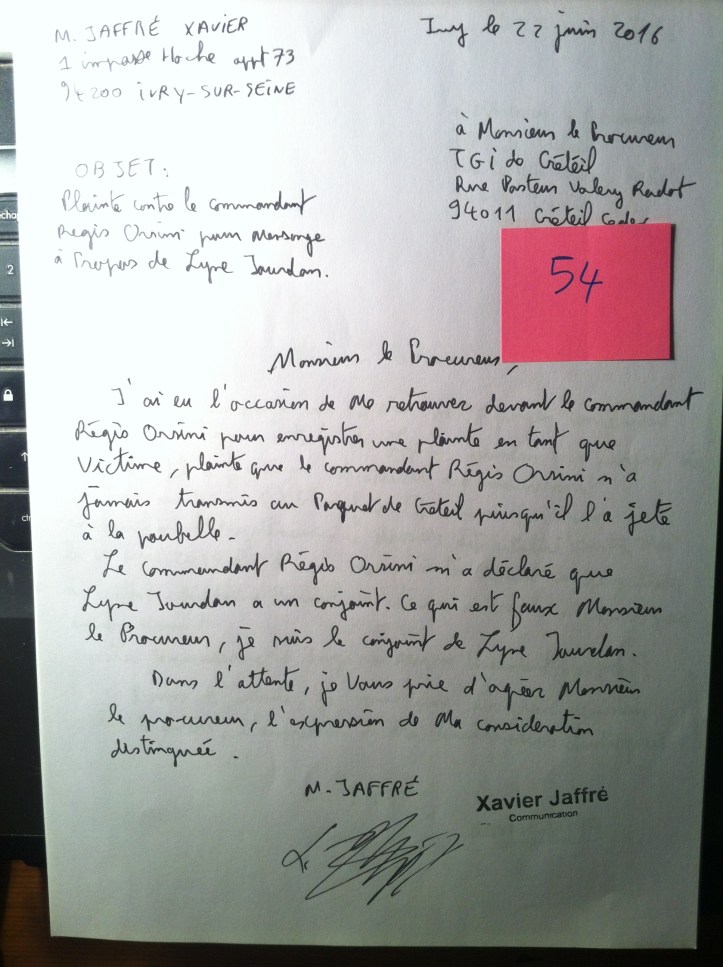 M. JAFFRÉ XAVIER
1 impasse Hoche appt 73
94200 IVRY-SUR-SEINE
Ivry le 22 juin 2016
à Monsieur le Procureur
TGI de Créteil
Rue Pasteur Valery Radot
94011 Créteil Cedex
OBJET:
Plainte contre le commandant
Régis Orsini pour Mensonge
à Propos de Lyne Jourdan.
54
Monsieur le Procureur,
J'ai eu l'occasion de me retrouver devant le commandant
Régis Orsini pour enregistrer une plainte en tant que
Victime, plainte que le commandant Régis Orsini n'a
jamais transmis au Parquet de Créteil puisqu'il l'a jeté
à la poubelle.
Le Commandant Régis Orsini m'a déclaré que
Lyne Jourdan a un conjoint. Ce qui est faux Monsieur
le Procureur, je suis le conjoint de Lyne Jourdan.
Dans l'attente, je Vous prie d'agréer Monsieur
le procureur, l'expression de Ma considération
distinguée.
M. JAFFRÉ
Xavier Jaffré
Communication